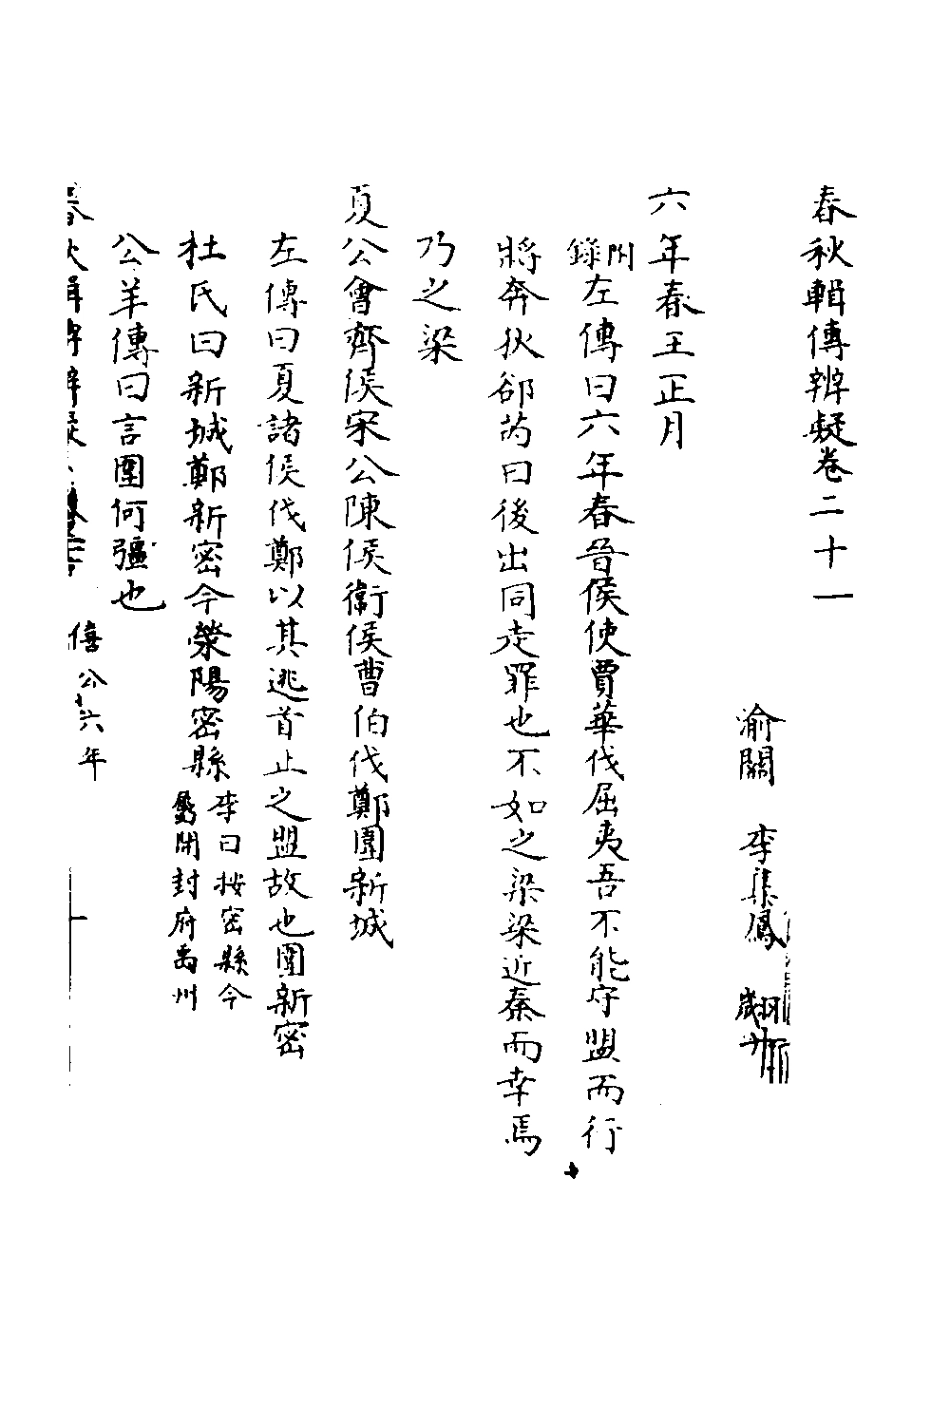 春秋輯傳辨疑卷二十一
渝關　李集鳳　翽升
六年春王正月
附錄左傳曰六年春晉侯使賈華伐屈夷吾不能守盟而行
將奔狄郤芮曰後出同走罪也不如之梁梁近秦而幸焉
乃之梁
夏公會齊侯宋公陳侯衛侯曹伯伐鄭圍新城
左傳曰夏諸侯伐鄭以其逃首止之盟故也圍新密
杜氏曰新城鄭新密今滎陽密縣
李曰按密縣今
開封府禹州
公羊傳曰言圍何彊也
春秋輯傳辨疑
僖公六年